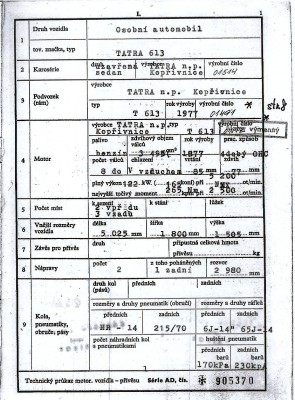 L
1
Druh vozidla
Osobní automobil
tov. značka, typ
TATRA 613
2 Karosérie
druh
výrobce
výrobní číslo
uzavřená TATRA n.p.
sedan Kopřivnice
3 Podvozek (rám)
výrobce
TATRA n.p. Kopřivnice
typ
rok výroby
výrobní číslo
T 613
1977
4 Motor
výrobce
TATRA n.p.
Kopřivnice
typ
T 613
výrobní číslo
palivo
zdvihový objem válců
rok výroby
prac. způsob
benzín
1977
4dobý OHC
počet válců
chlazení
vrtání
zdvih
8 do V
vzduchem
85 mm
77 mm
plný výkon
kW
5 200 ot/min.
nejvyšší točivý moment
265 Nm
2 500 ot/min.
5 Počet míst
k sezení
k stání
lůžek
2 vpředu
3 vzadu
6 Vnější rozměry vozidla
délka
šířka
výška
5 025 mm
1 800 mm
1 505 mm
7 Závěs pro přívěs
druh
přípustná celková hmota přívěsu
kg
8 Nápravy
počet
z toho poháněných
rozvor
2
1 zadní
2 980 mm
9 Kola, pneumatiky, obruče, pásy
druh kol (pásů)
rozměry a druhy pneumatik (obručí)
rozměry a druhy ráfků
předních
zadních
předních
zadních
HR - 14
215/70
6J-14"
počet náhradních kol s pneumatikami
huštění pneumatik
předních barů
zadních barů
170kPa
230kPa
Technický průkaz motor. vozidla – přívěsu Série AD, čís. * 905370